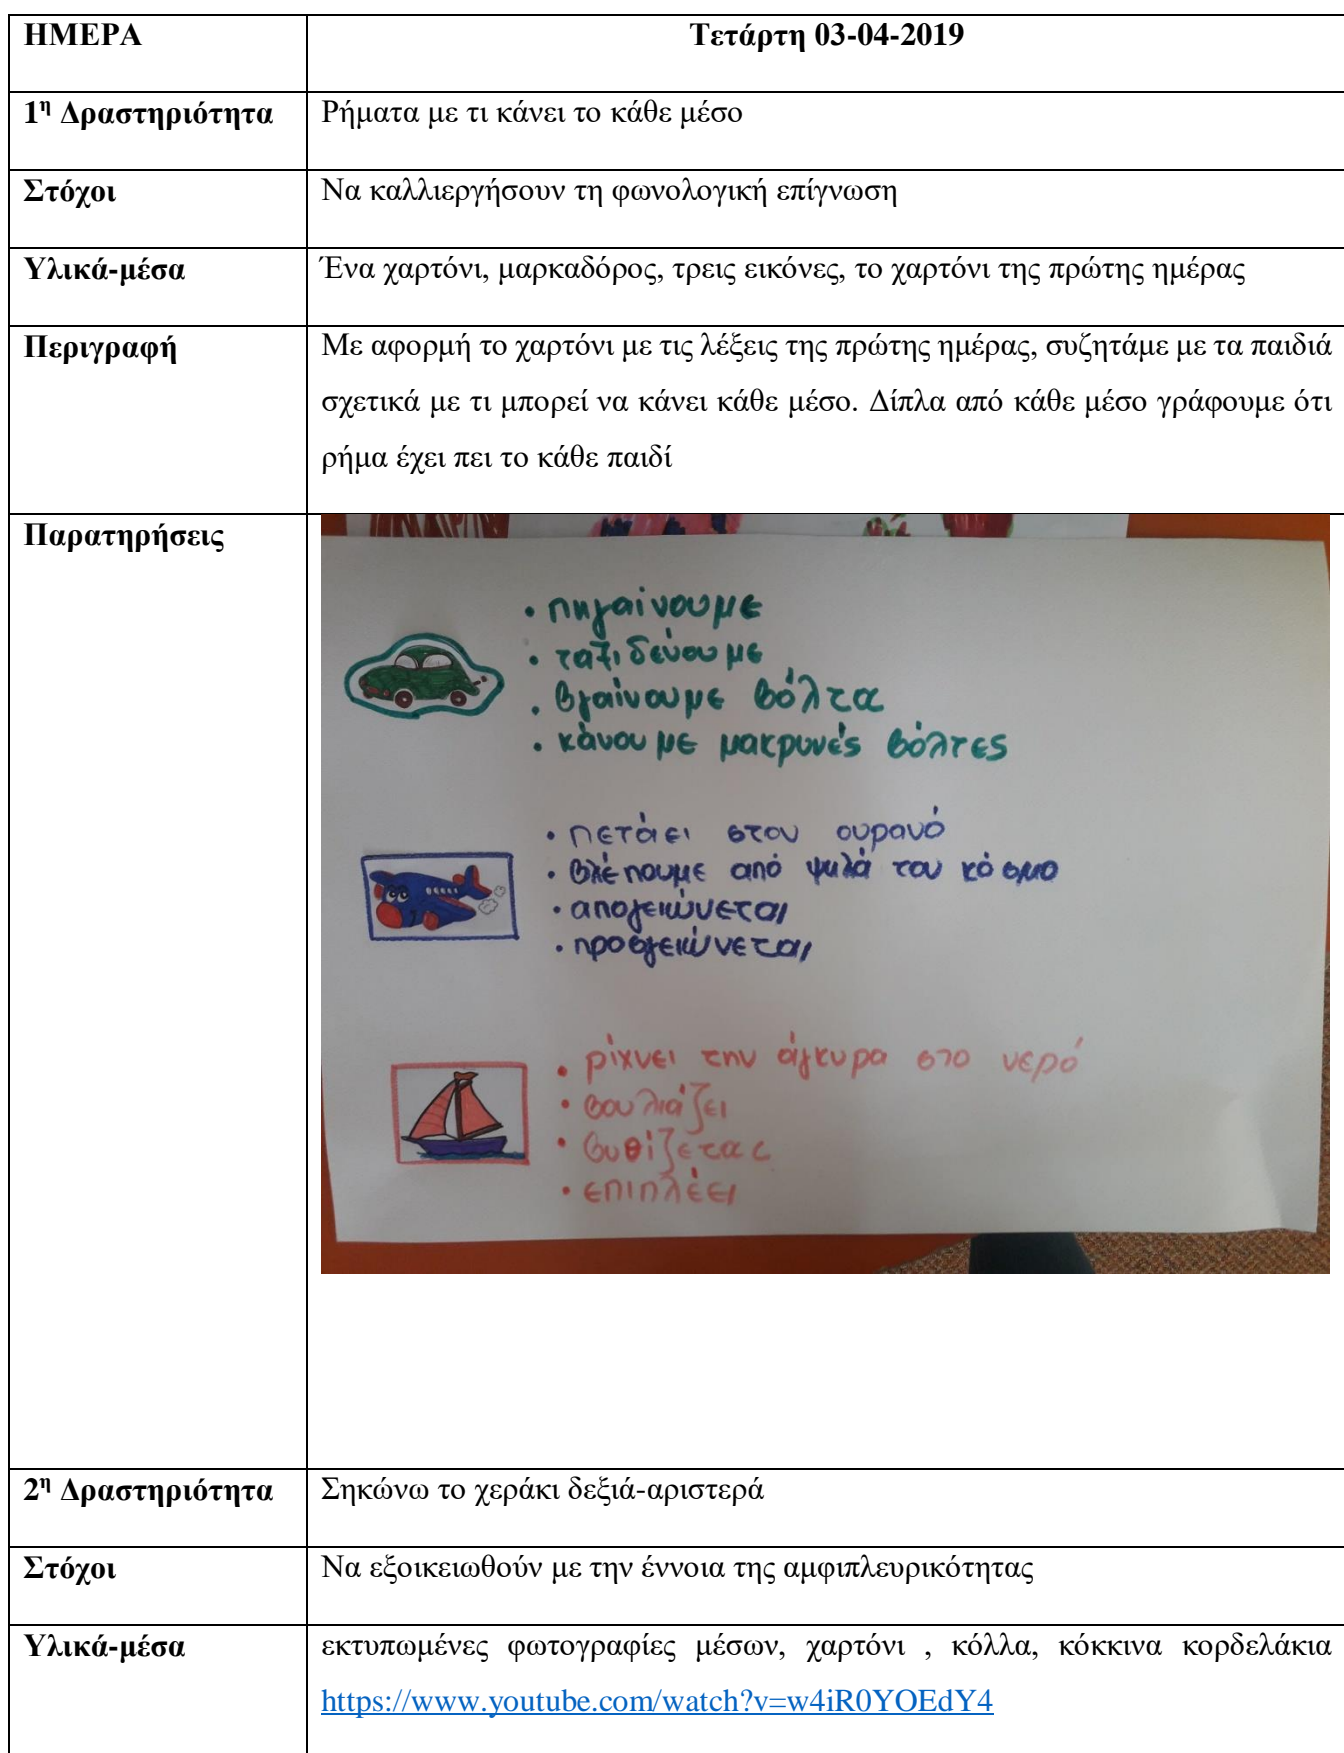 ΗΜΕΡΑ Τετάρτη 03-04-2019
1η Δραστηριότητα Ρήματα με τι κάνει το κάθε μέσο
Στόχοι Να καλλιεργήσουν τη φωνολογική επίγνωση
Υλικά-μέσα Ένα χαρτόνι, μαρκαδόρος, τρεις εικόνες, το χαρτόνι της πρώτης ημέρας
Περιγραφή Με αφορμή το χαρτόνι με τις λέξεις της πρώτης ημέρας, συζητάμε με τα παιδιά
σχετικά με τι μπορεί να κάνει κάθε μέσο. Δίπλα από κάθε μέσο γράφουμε ότι
ρήμα έχει πει το κάθε παιδί
Παρατηρήσεις
• πηγαίνουμε
• ταξιδεύουμε
• βγαίνουμε βόλτα
• κάνουμε μακρυνές βόλτες
• πετάει στον ουρανό
• βλέπουμε από ψιλά τον κόσμο
• απογειώνεται
• προσγειώνεται
• ρίχνει την άγκυρα στο νερό
• βουλιάζει
• βυθίζεται
• επιπλέει
2η Δραστηριότητα Σηκώνω το χεράκι δεξιά-αριστερά
Στόχοι Να εξοικειωθούν με την έννοια της αμφιπλευρικότητας
Υλικά-μέσα εκτυπωμένες φωτογραφίες μέσων, χαρτόνι , κόλλα, κόκκινα κορδελάκια
https://www.youtube.com/watch?v=w4iR0YOEdY4